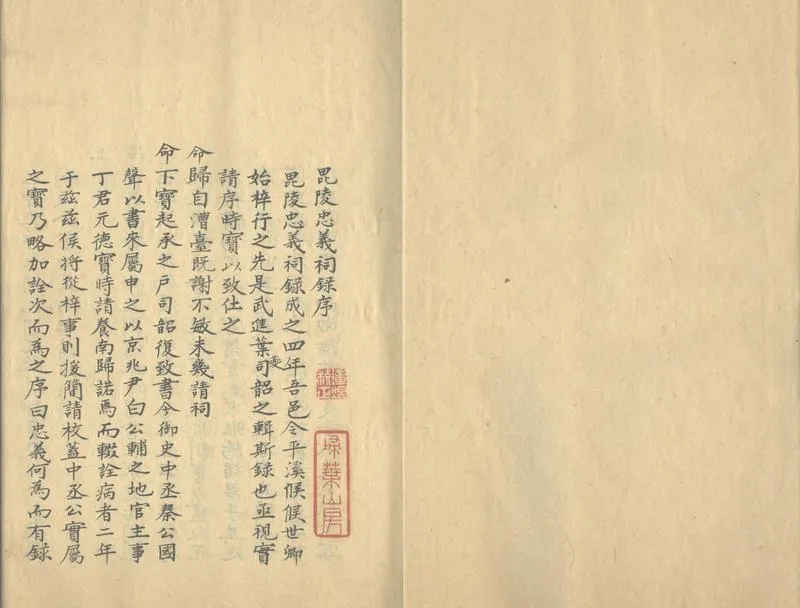 毘陵忠義祠録序
毘陵忠義祠録成之四年吾邑令平溪候候世卿
始梓行之先是武進葉司韶之輯斯録也亟視實
請序時寶以致仕之
命歸自漕臺既謝不敏未幾請祠
命下寶起承之戸司韶復致書今御史中丞秦公國
聲以書來屬申之以京兆尹白公輔之地官主事
丁君元德寶時請養南歸諾焉而輟詮病者二年
于兹兹侯將從梓事則援簡請校蓋中丞公實屬
之寶乃略加詮次而為之序曰忠義何為而有録
埽葉山房